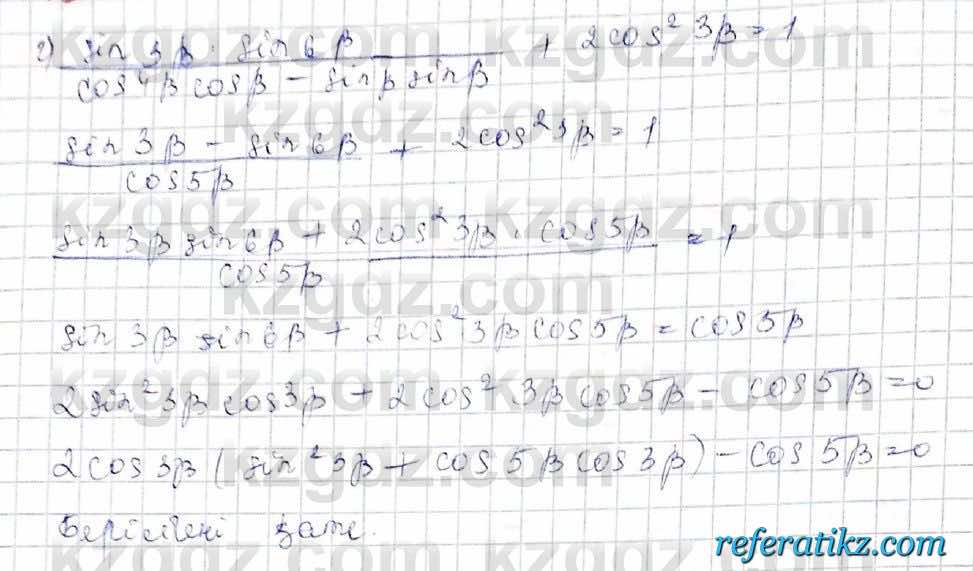 2) sin 3β · sin 6β / cos 4β cos β − sin β sin β + 2cos² 3β = 1
sin 3β − sin 6β / cos 5β + 2cos² 3β = 1
sin 3β sin 6β + 2cos² 3β · cos 5β / cos 5β = 1
sin 3β sin 6β + 2cos² 3β cos 5β = cos 5β
2 sin² 3β cos 3β + 2cos² 3β cos 5β − cos 5β = 0
2cos 3β (sin² 3β + cos 5β cos 3β) − cos 5β = 0
Берілгені қате.
kzgdz.com
kzgdz.com
kzgdz.com
kzgdz.com
kzgdz.com
kzgdz.com
referatikz.com